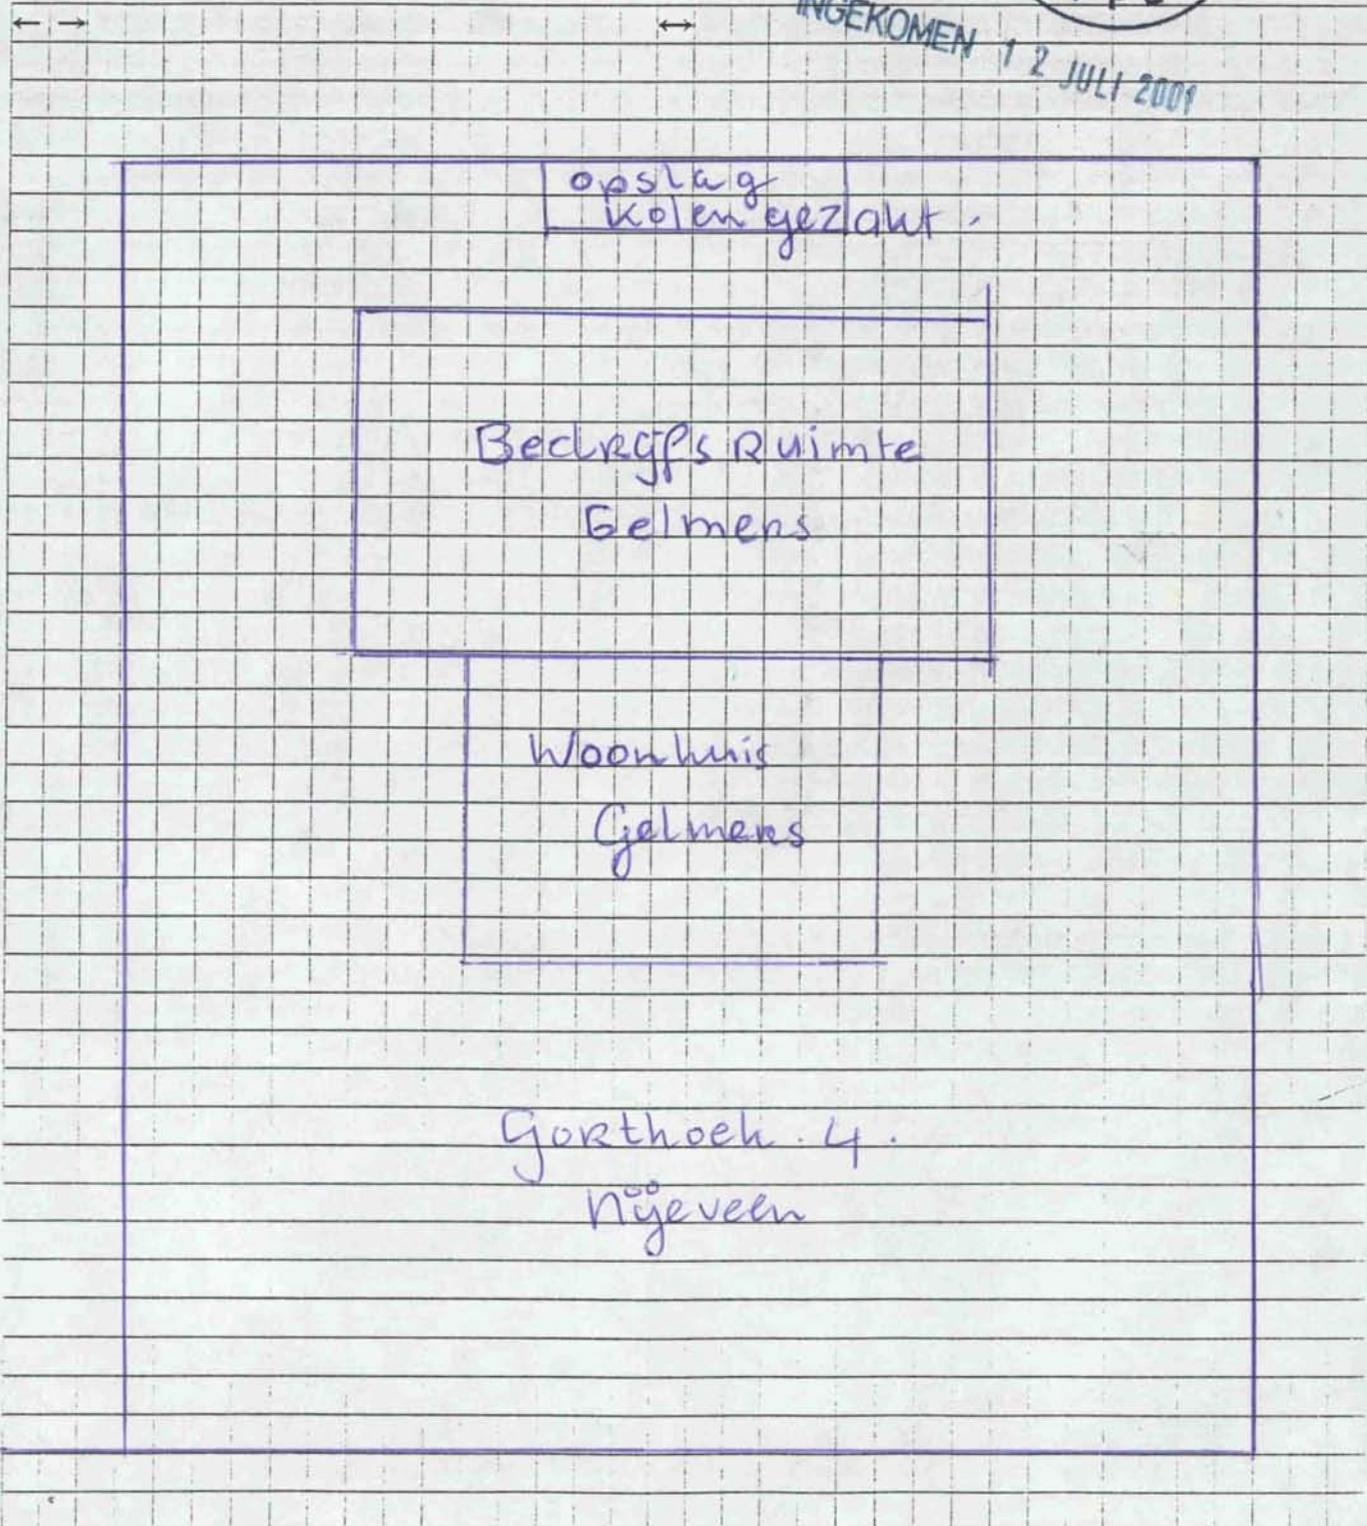 INGEKOMEN 12 JULI 2001
opslag
kolen gezakt.
BedRijfs Ruimte
Gelmers
Woonhuis
Gelmers
Gorthoek 4.
Nijeveen